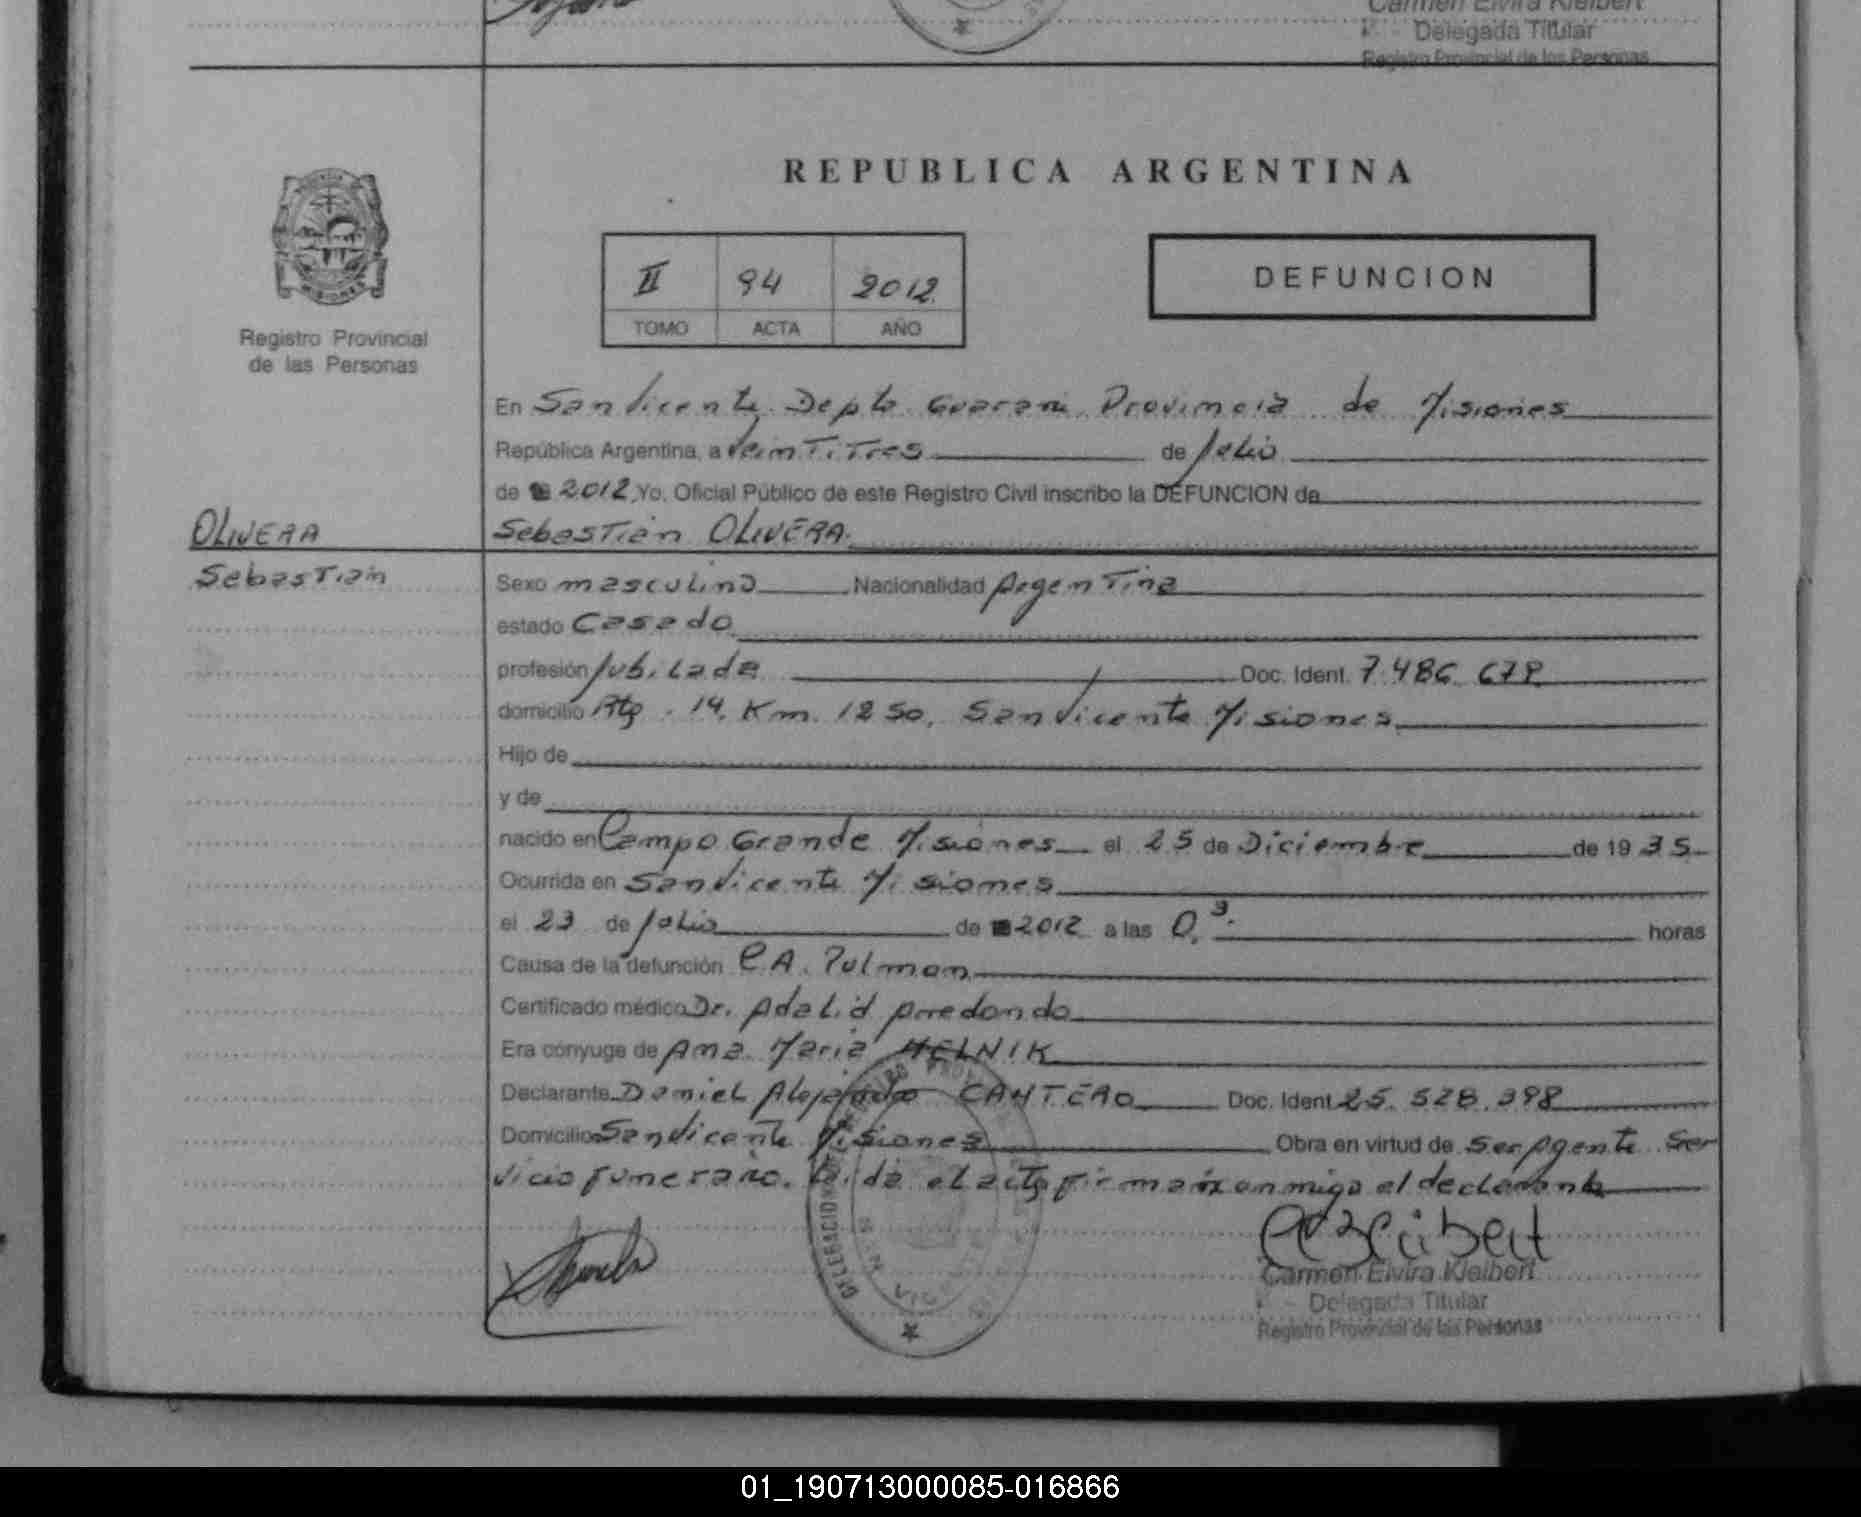 Carmen Elvira Kleibert
Delegada Titular
Registro Provincial de las Personas
REPUBLICA ARGENTINA
II 94 2012
TOMO ACTA AÑO
DEFUNCION
MISIONES
Registro Provincial
de las Personas
En San Vicente Depto Guarani Provincia de Misiones
República Argentina, a Veintitres de Julio
de 2012 Yo, Oficial Público de este Registro Civil inscribo la DEFUNCION de
OLIVERA
Sebastian
Sebastián OLIVERA
Sexo masculino Nacionalidad Argentina
estado Casado
profesión Jubilada Doc. Ident. 7.486.678
domicilio Rta. 14. Km. 1250, San Vicente Misiones
Hijo de
y de
nacido en Campo Grande Misiones el 25 de Diciembre de 19 35
Ocurrida en San Vicente Misiones
el 23 de Julio de 2012 a las 0,3. horas
Causa de la defunción C.A. Pulmon
Certificado médico Dr. Adalid Arredondo
Era cónyuge de Ana Maria MELNIK
Declarante Daniel Alejandro CANTERO Doc. Ident. 25.528.398
Domicilio San Vicente Misiones Obra en virtud de ser Agente Ser
vicio funerario. Leida el acta firman conmigo el declarante
Carmen Elvira Kleibert
Delegada Titular
Registro Provincial de las Personas
01_190713000085-016866